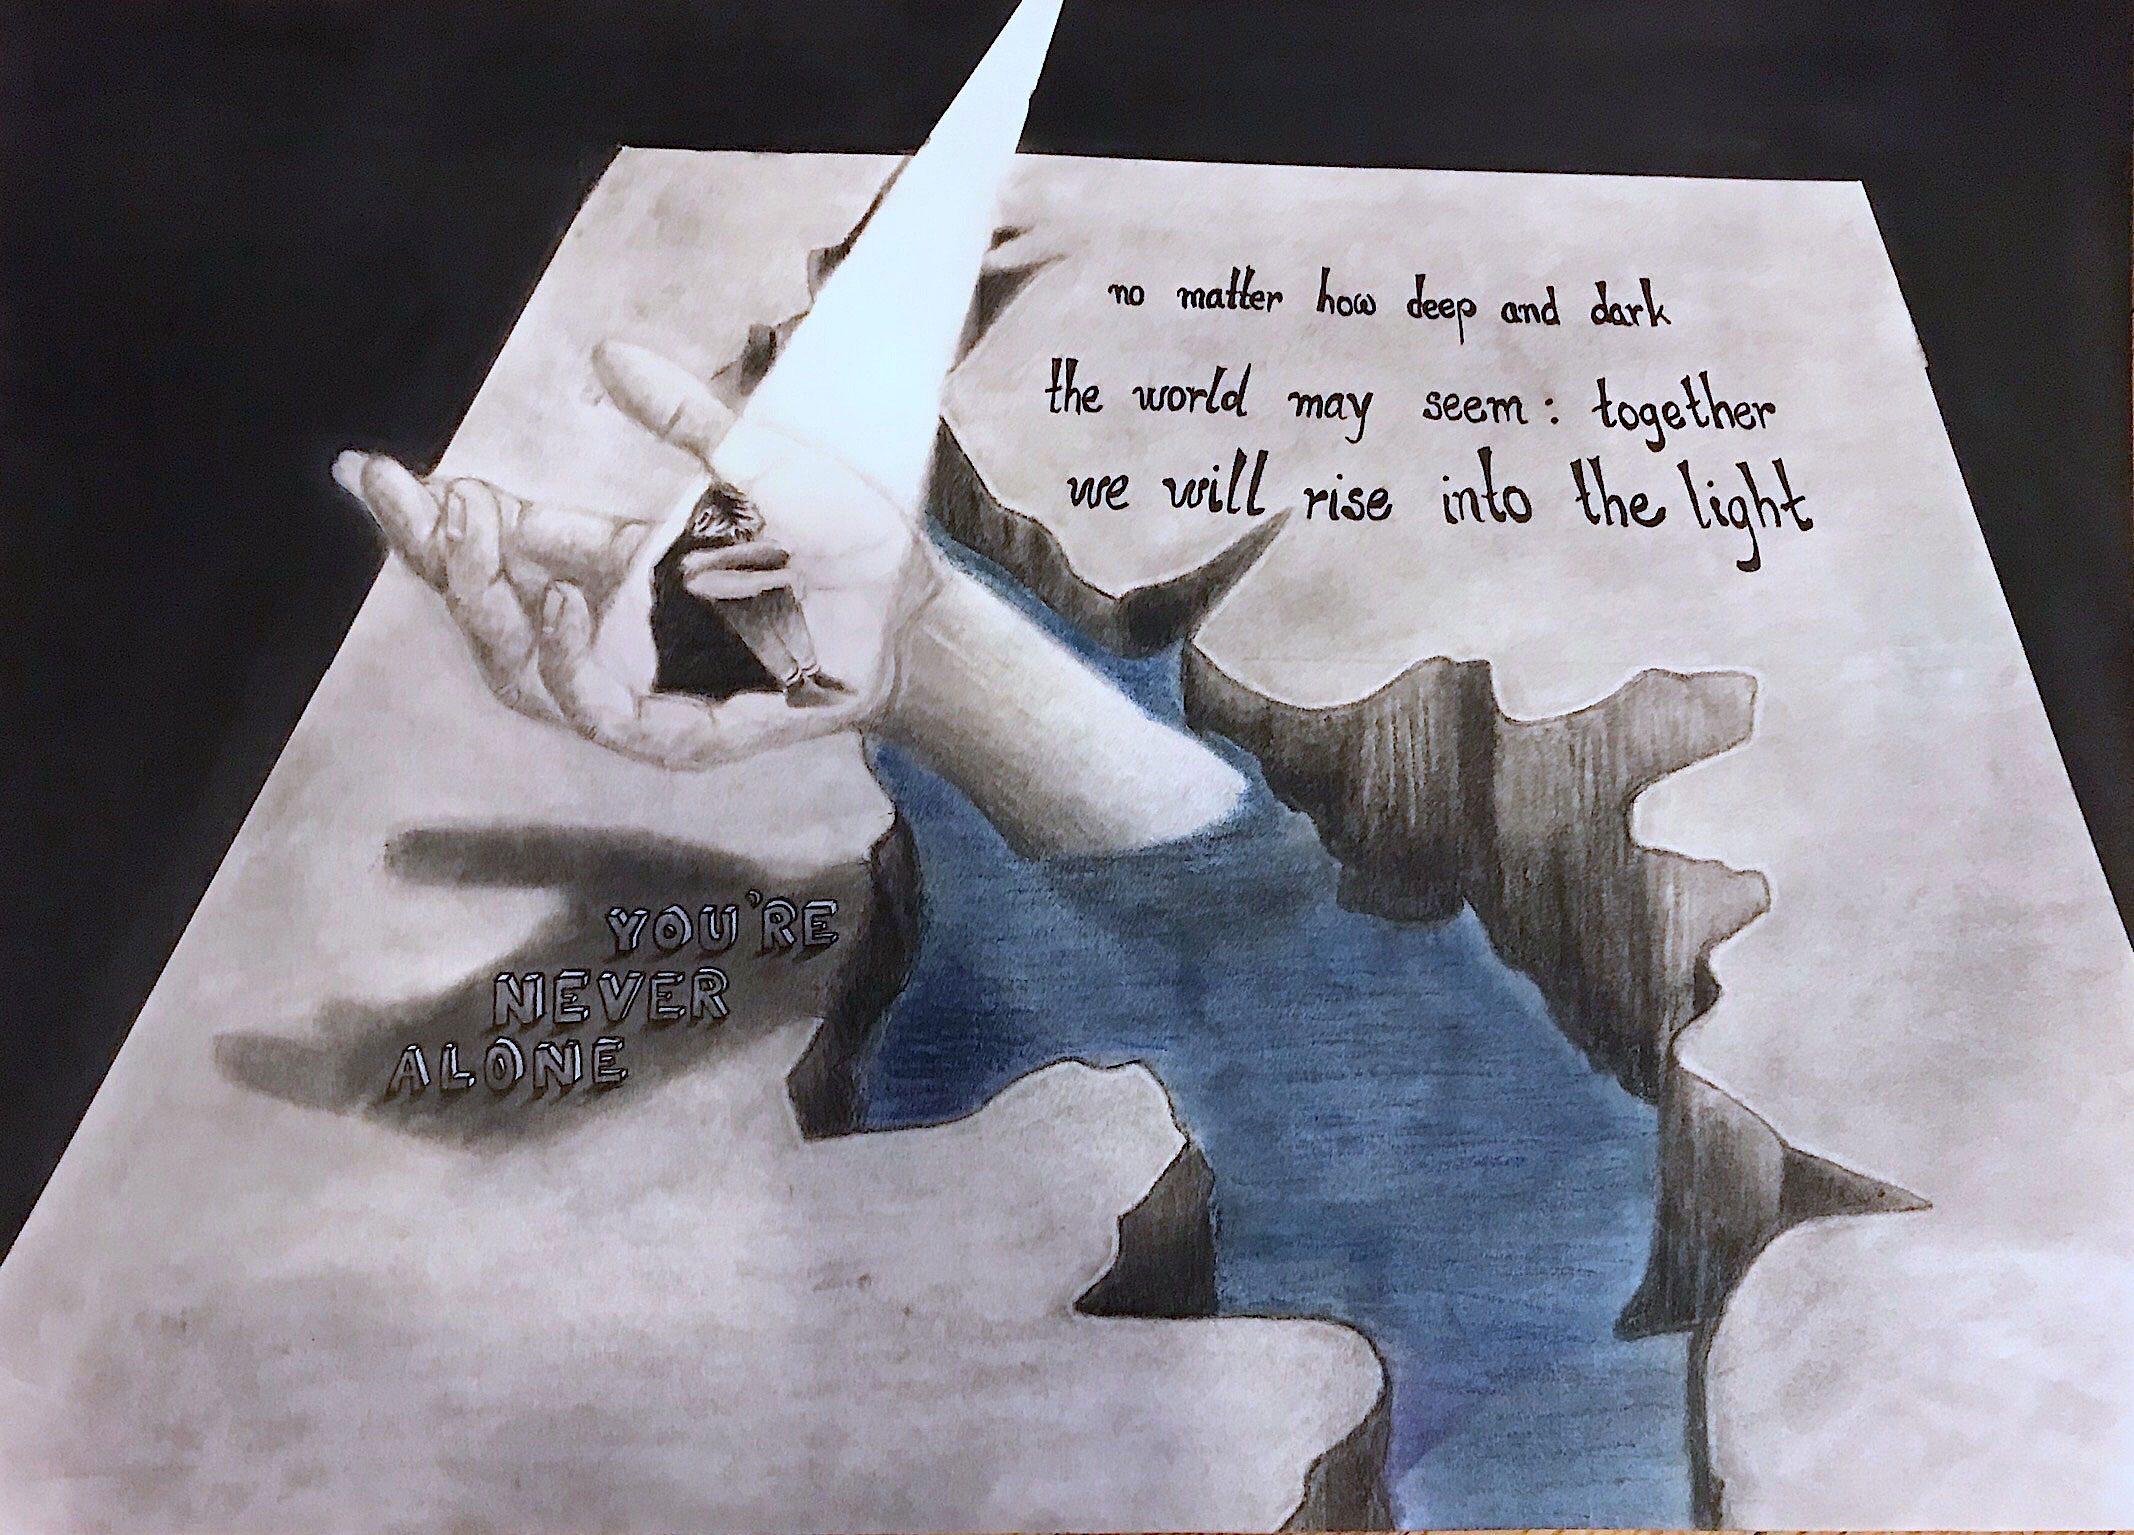 no matter how deep and dark
the world may seem: together
we will rise into the light
YOU'RE
NEVER
ALONE